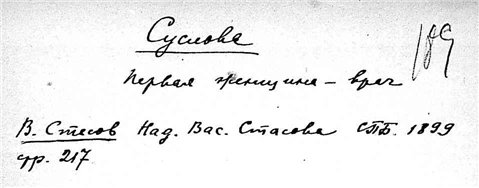 Суслова
189
Первая женщина - врач
В. Стасов Над. Вас. Стасова СПБ. 1899
стр. 217